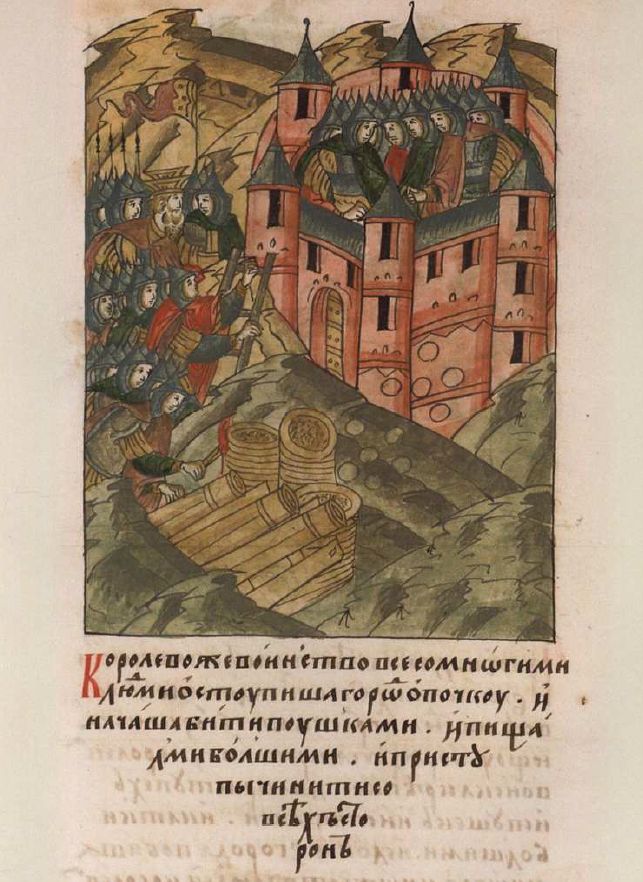 Королевожевоинствовсесомнѡгими
людмиостоупишагородопочкоу. и
начашабитипоушками. ипища
лмиболшими. ипристу
пычинитисо
всѣхъсто
ронъ